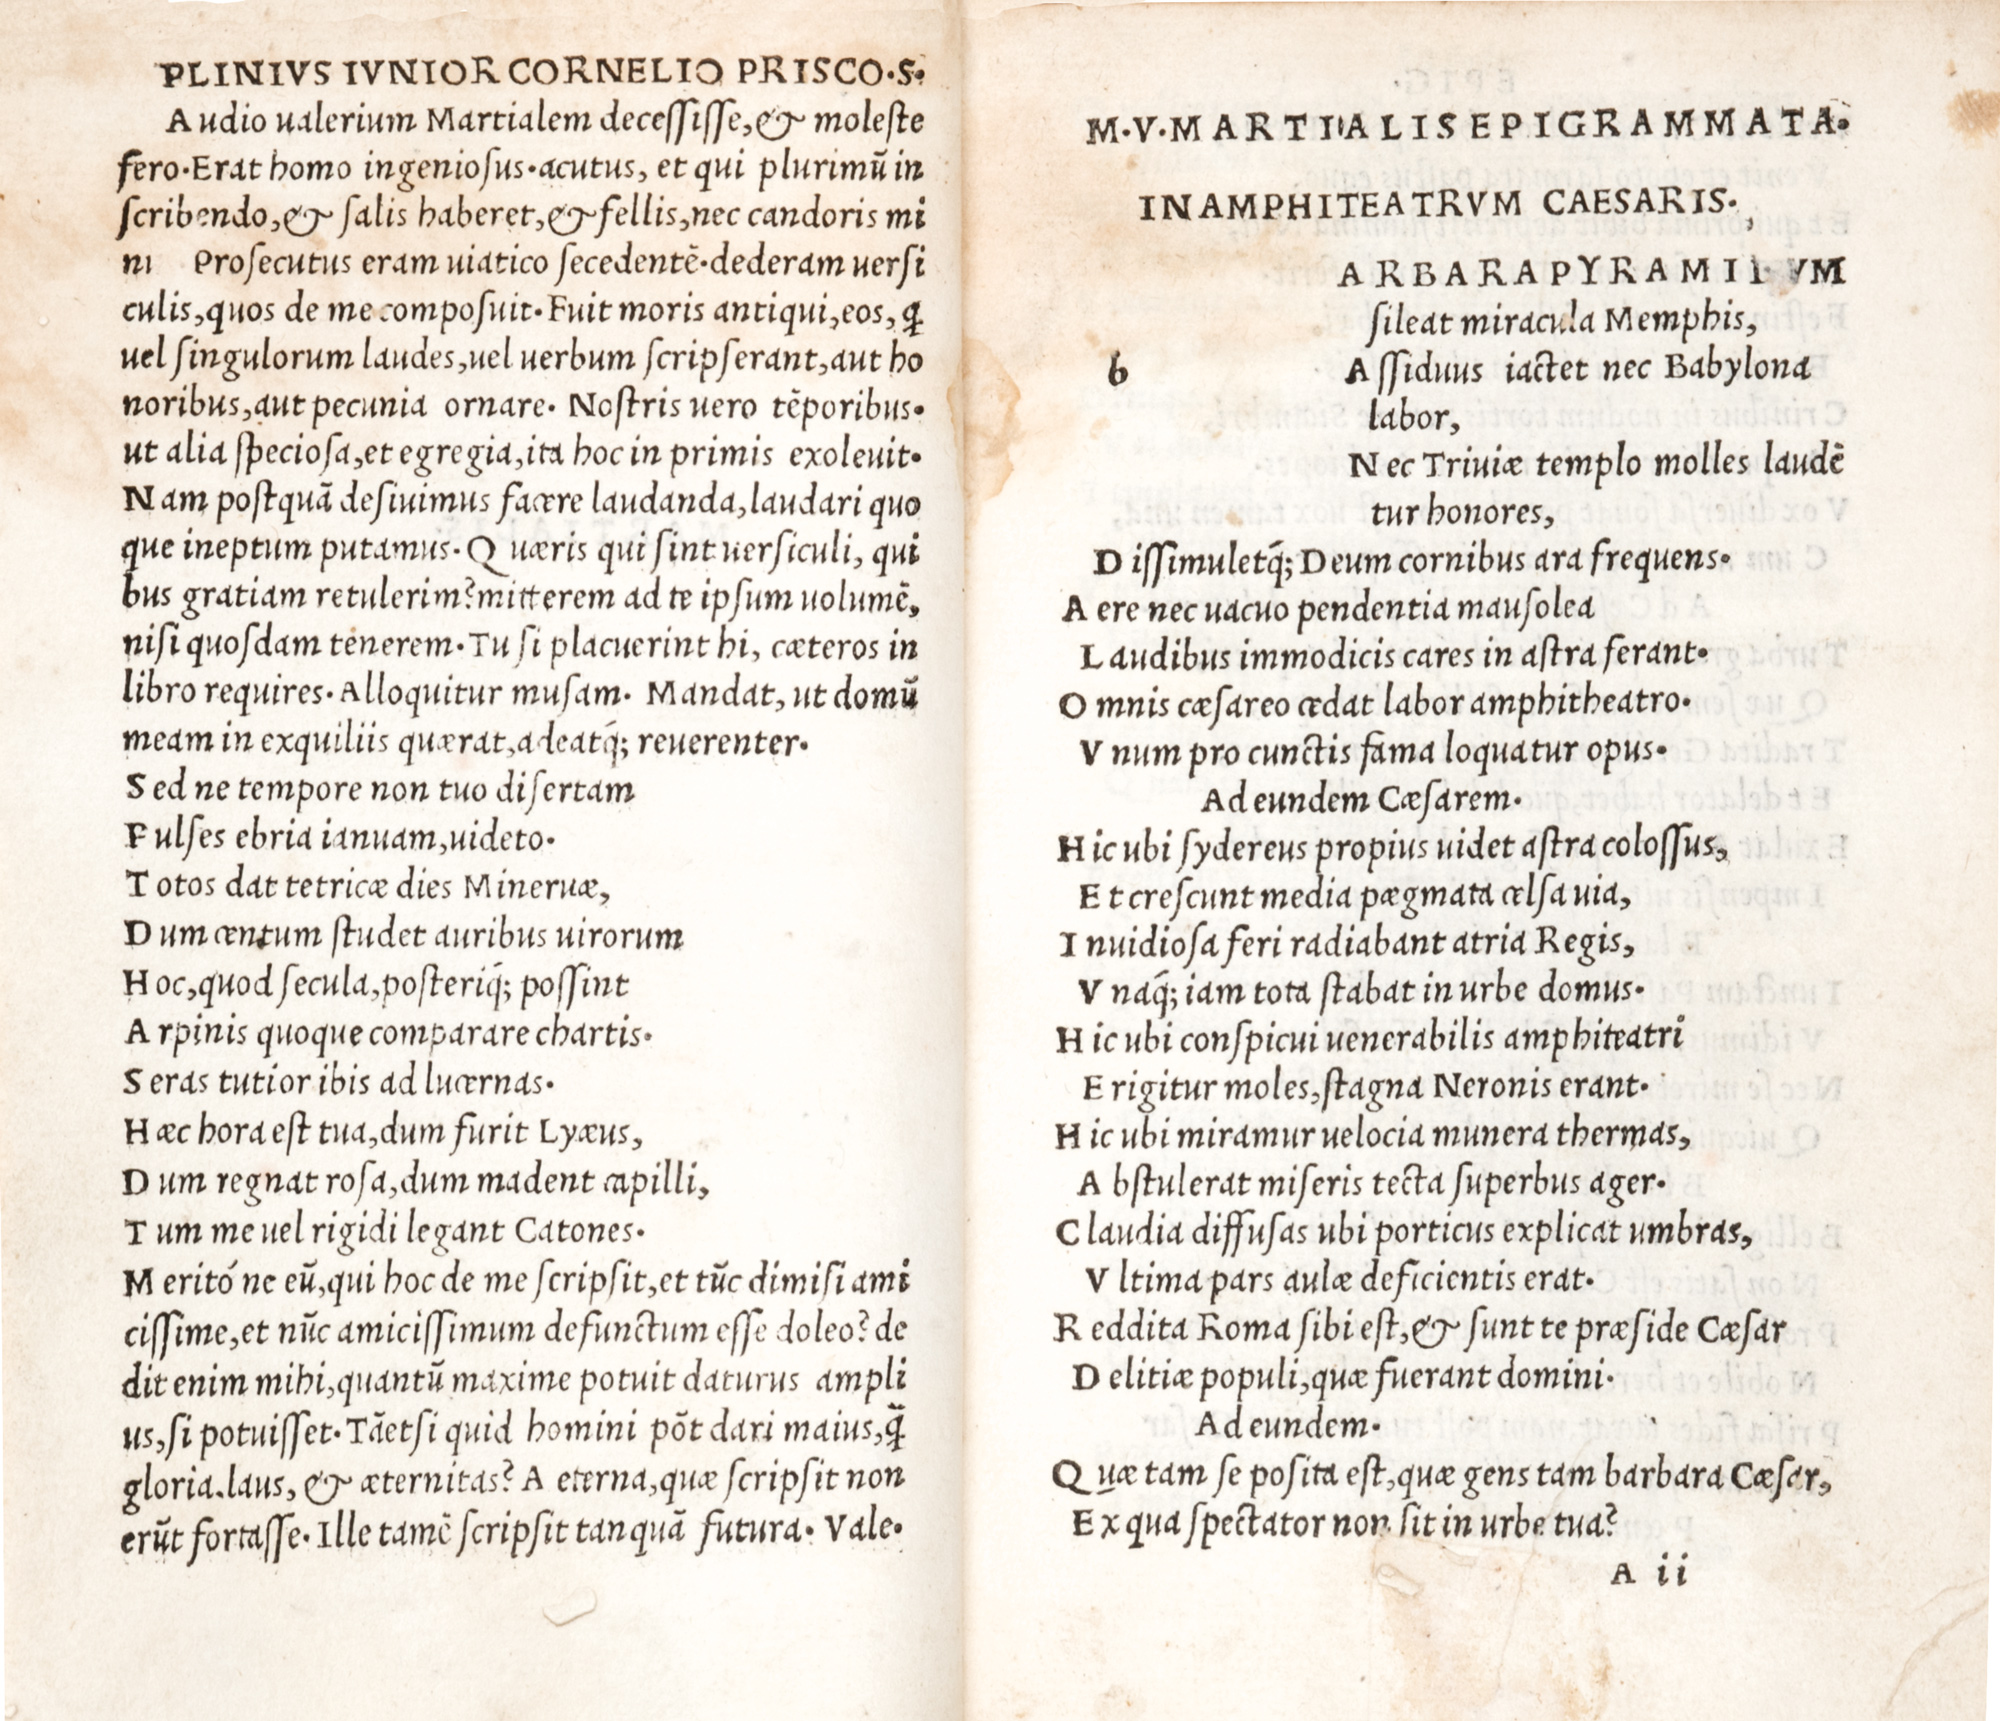 PLINIVS IVNIOR CORNELIO PRISCO.S.
Audio ualerium Martialem decessisse,& moleste
fero.Erat homo ingeniosus.acutus, et qui plurimū in
scribendo,& salis haberet,& fellis,nec candoris mi
ni Prosecutus eram uiatico secedentē.dederam uersi
culis,quos de me composuit.Fuit moris antiqui,eos,ꝗ
uel singulorum laudes,uel uerbum scripserant,aut ho
noribus,aut pecunia ornare. Nostris uero tēporibus.
ut alia speciosa,et egregia,ita hoc in primis exoleuit.
Nam postquā desiuimus facere laudanda,laudari quo
que ineptum putamus.Quæris qui sint uersiculi, qui
bus gratiam retulerim?mitterem ad te ipsum uolumē,
nisi quosdam tenerem.Tu si placuerint hi, cæteros in
libro requires.Alloquitur musam. Mandat, ut domū
meam in exquiliis quærat,adeatq́; reuerenter.
Sed ne tempore non tuo disertam
Pulses ebria ianuam,uideto.
Totos dat tetricæ dies Mineruæ,
Dum centum studet auribus uirorum
Hoc,quod secula,posteriq́; possint
Arpinis quoque comparare chartis.
Seras tutior ibis ad lucernas.
Hæc hora est tua,dum furit Lyæus,
Dum regnat rosa,dum madent capilli,
Tum me uel rigidi legant Catones.
Meritó ne eū,qui hoc de me scripsit,et tūc dimisi ami
cissime,et nūc amicissimum defunctum esse doleo?de
dit enim mihi,quantū maxime potuit daturus ampli
us,si potuisset.Tāetsi quid homini pōt dari maius,ꝗ̄
gloria.laus, & æternitas?Aeterna,quæ scripsit non
erūt fortasse.Ille tamē scripsit tanquā futura. Vale.
M.V.MARTIALIS EPIGRAMMATA.
IN AMPHITEATRVM CAESARIS.
b
ARBARA PYRAMIDVM
sileat miracula Memphis,
Assiduus iactet nec Babylona
labor,
Nec Triuiæ templo molles laudē
tur honores,
Dissimuletq́; Deum cornibus ara frequens.
Aere nec uacuo pendentia mausolea
Laudibus immodicis cares in astra ferant.
Omnis cæsareo cedat labor amphitheatro.
Vnum pro cunctis fama loquatur opus.
Ad eundem Cæsarem.
Hic ubi sydereus propius uidet astra colossus,
Et crescunt media pægmata celsa uia,
Inuidiosa feri radiabant atria Regis,
Vnaq́; iam tota stabat in urbe domus.
Hic ubi conspicui uenerabilis amphiteatri
Erigitur moles,stagna Neronis erant.
Hic ubi miramur uelocia munera thermas,
Abstulerat miseris tecta superbus ager.
Claudia diffusas ubi porticus explicat umbras,
Vltima pars aulæ deficientis erat.
Reddita Roma sibi est,& sunt te præside Cæsar
Delitiæ populi,quæ fuerant domini.
Ad eundem.
Quæ tam se posita est,quæ gens tam barbara Cæsar,
Ex qua spectator non sit in urbe tua?
A ii